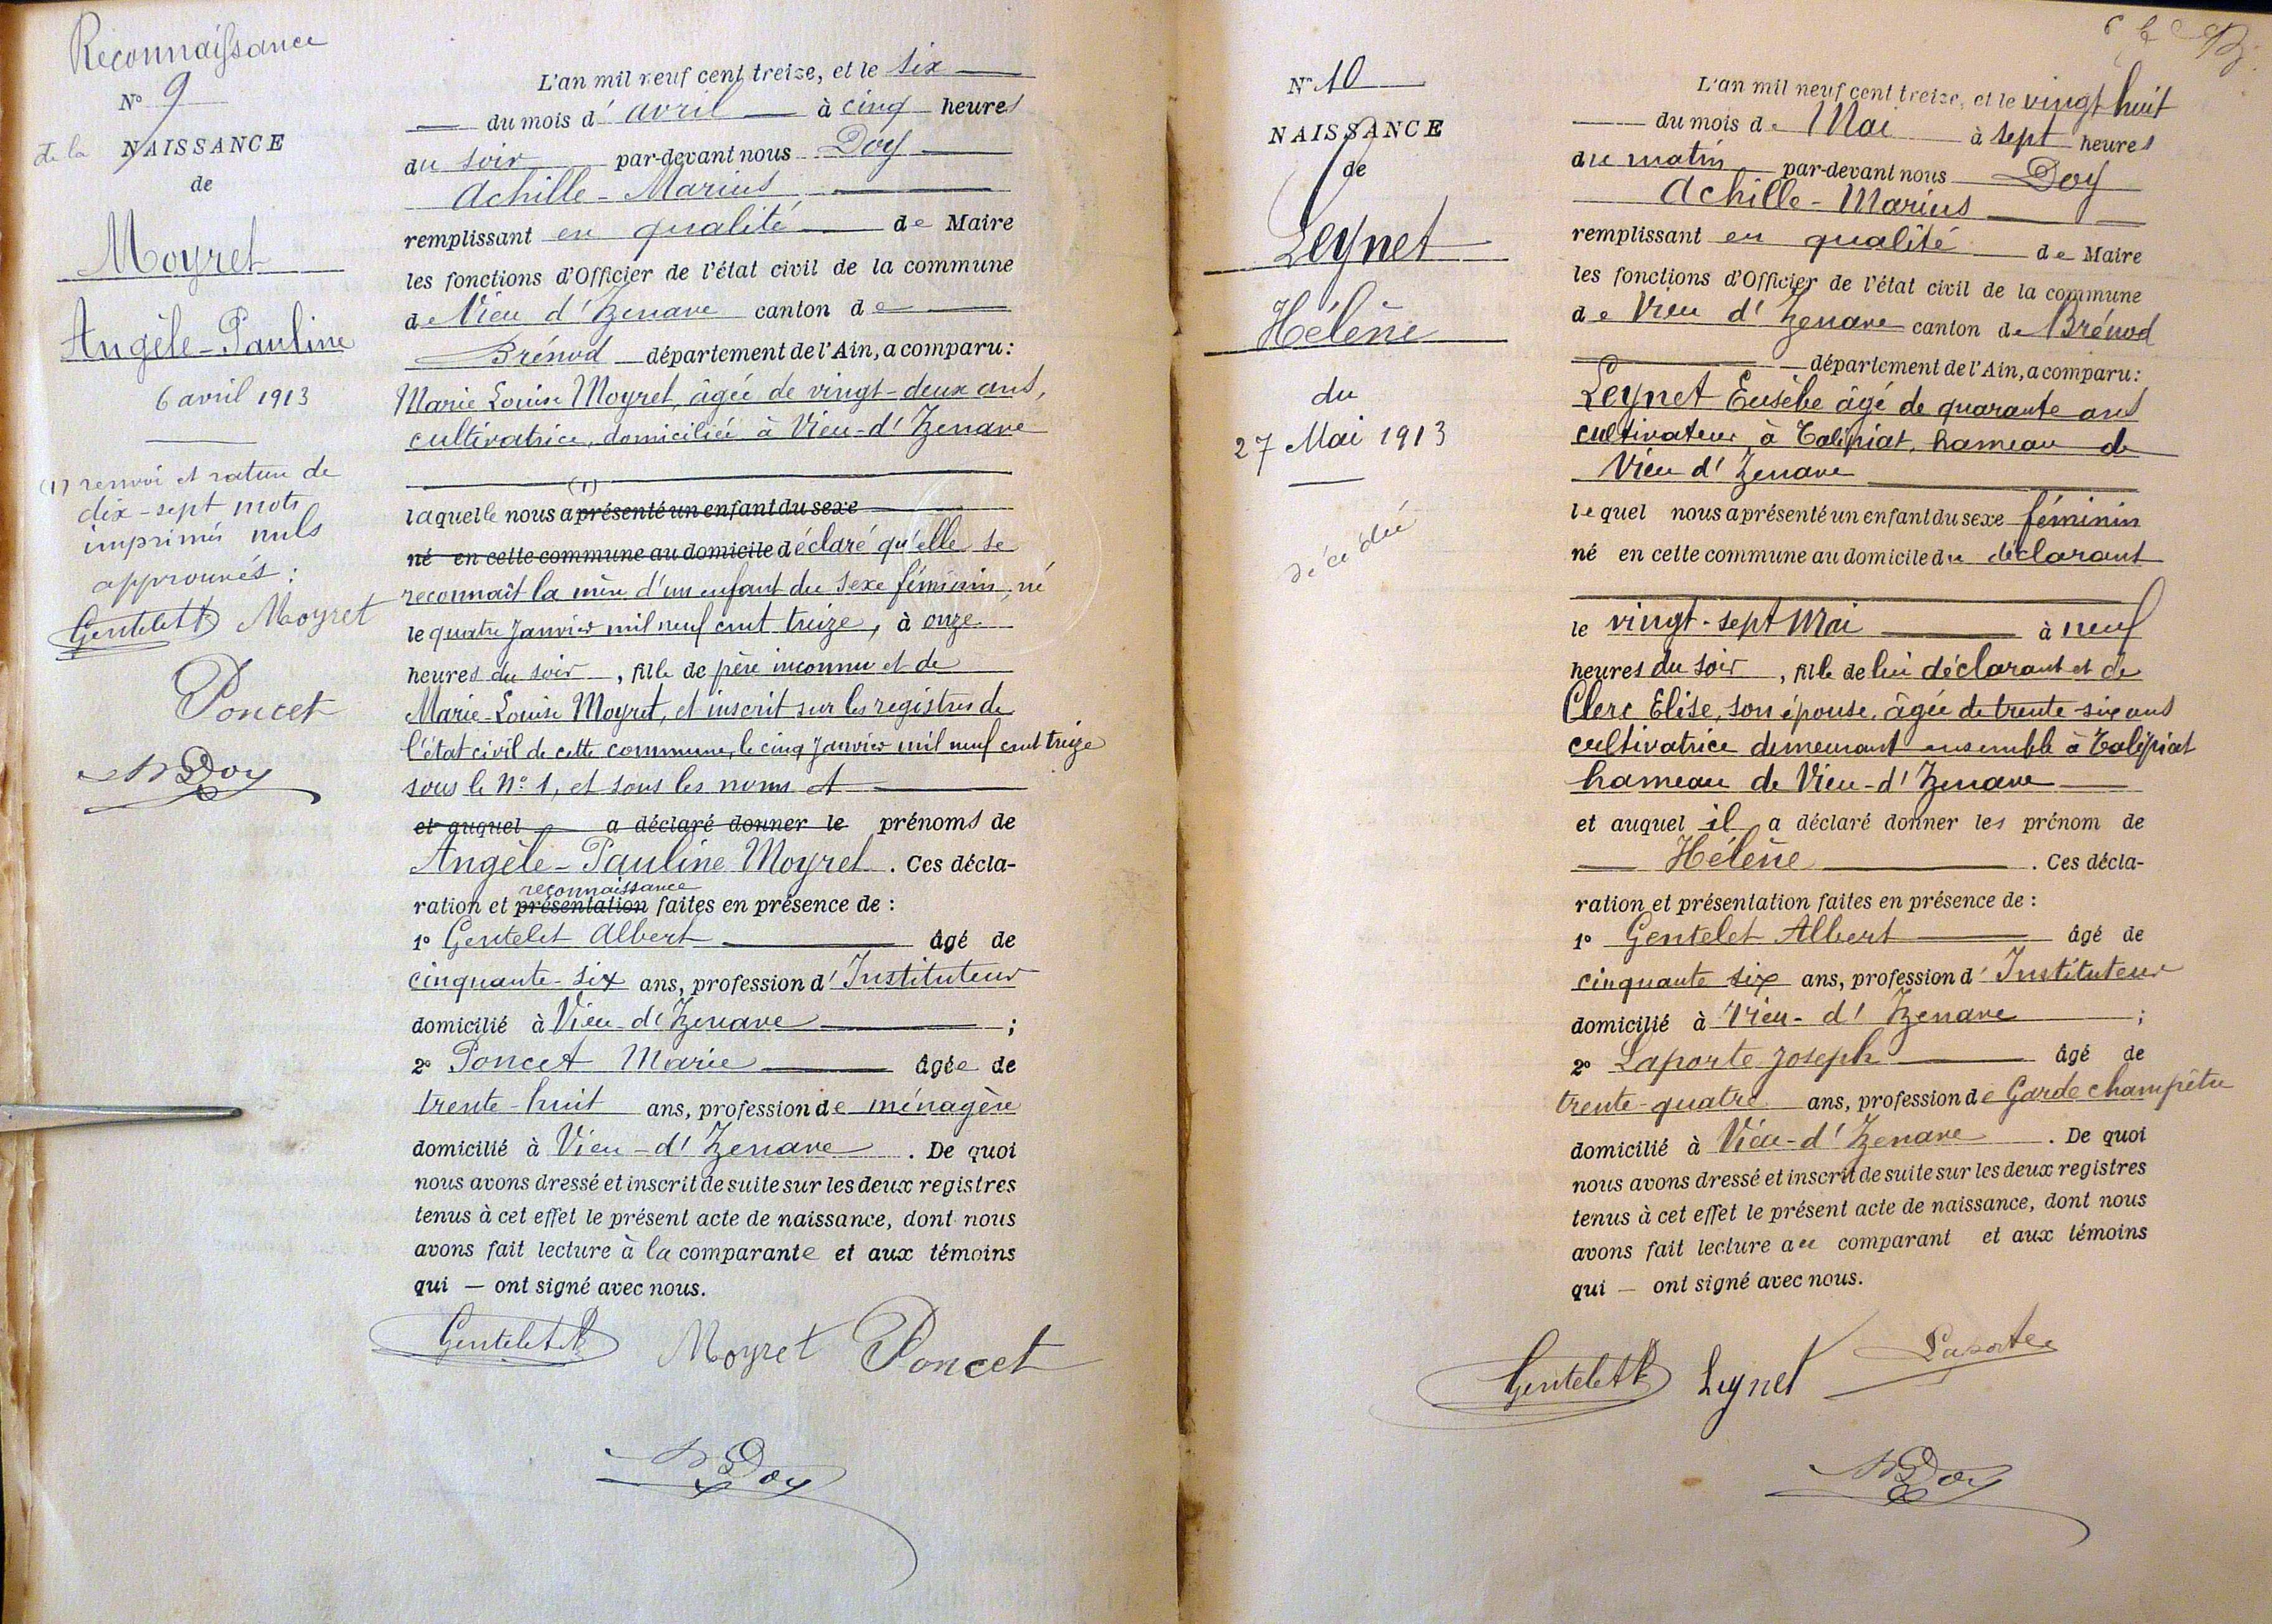 Reconnaissance
N° 9
de la NAISSANCE
de
Moyret
Angèle-Pauline
6 avril 1913
(1) renvoi et rature de
dix-sept mots
imprimés nuls
approuvés :
Gentelet Moyret
Poncet
Doy
L'an mil neuf cent treize, et le six
du mois d'avril à cinq heures
du soir par-devant nous Doy
Achille-Marius
remplissant en qualité de Maire
les fonctions d'Officier de l'état civil de la commune
de Vieu d'Izenave canton de
Brénod département de l'Ain, a comparu :
Marie Louise Moyret, âgée de vingt-deux ans,
cultivatrice, domiciliée à Vieu-d'Izenave
(1)
laquelle nous a présenté un enfant du sexe
né en cette commune au domicile déclaré qu'elle se
reconnaît la mère d'un enfant du sexe féminin, né
le quatre Janvier mil neuf cent treize, à onze
heures du soir, fille de père inconnu et de
Marie-Louise Moyret, et inscrit sur les registres de
l'état civil de cette commune, le cinq Janvier mil neuf cent treize
sous le N° 1, et sous les noms et
et auquel a déclaré donner le prénoms de
Angèle-Pauline Moyret. Ces décla-
reconnaissance
ration et présentation faites en présence de :
1° Gentelet Albert âgé de
cinquante-six ans, profession d'Instituteur
domicilié à Vieu-d'Izenave ;
2° Poncet Marie âgée de
trente-huit ans, profession de ménagère
domicilié à Vieu-d'Izenave. De quoi
nous avons dressé et inscrit de suite sur les deux registres
tenus à cet effet le présent acte de naissance, dont nous
avons fait lecture à la comparante et aux témoins
qui — ont signé avec nous.
Gentelet Moyret Poncet
Doy
N° 10
NAISSANCE
de
Leynet
Hélène
du
27 Mai 1913
décédée
L'an mil neuf cent treize, et le vingt huit
du mois de Mai à sept heures
du matin par-devant nous Doy
Achille-Marius
remplissant en qualité de Maire
les fonctions d'Officier de l'état civil de la commune
de Vieu d'Izenave canton de Brénod
département de l'Ain, a comparu :
Leynet Eusèbe âgé de quarante ans
cultivateur à Talipiat, hameau de
Vieu d'Izenave
lequel nous a présenté un enfant du sexe féminin
né en cette commune au domicile du déclarant
le vingt-sept Mai à neuf
heures du soir, fille de lui déclarant et de
Clerc Elise, son épouse, âgée de trente-six ans
cultivatrice demeurant ensemble à Talipiat
hameau de Vieu-d'Izenave
et auquel il a déclaré donner les prénom de
Hélène. Ces décla-
ration et présentation faites en présence de :
1° Gentelet Albert âgé de
cinquante six ans, profession d'Instituteur
domicilié à Vieu-d'Izenave ;
2° Laporte Joseph âgé de
trente-quatre ans, profession de Garde champêtre
domicilié à Vieu-d'Izenave. De quoi
nous avons dressé et inscrit de suite sur les deux registres
tenus à cet effet le présent acte de naissance, dont nous
avons fait lecture au comparant et aux témoins
qui — ont signé avec nous.
Gentelet Leynet Laporte
Doy